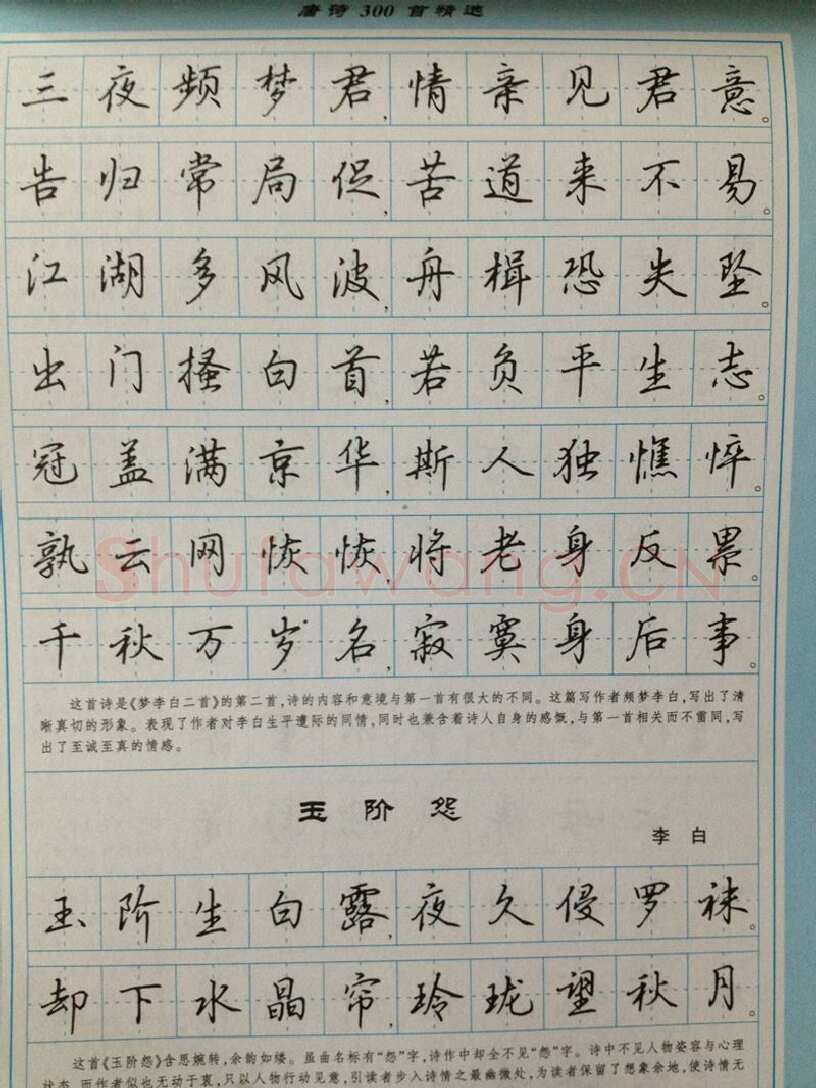 唐诗 300 首精选
三夜频梦君,情亲见君意。
告归常局促,苦道来不易。
江湖多风波,舟楫恐失坠。
出门搔白首,若负平生志。
冠盖满京华,斯人独憔悴。
孰云网恢恢,将老身反累。
千秋万岁名,寂寞身后事。
Shufawang.CN
这首诗是《梦李白二首》的第二首,诗的内容和意境与第一首有很大的不同。这篇写作者频梦李白,写出了清
晰真切的形象。表现了作者对李白生平遭际的同情,同时也兼含着诗人自身的感慨,与第一首相关而不雷同,写
出了至诚至真的情感。
玉阶怨
李白
玉阶生白露,夜久侵罗袜。
却下水晶帘,玲珑望秋月。
这首《玉阶怨》含思婉转,余韵如缕。虽曲名标有“怨”字,诗作中却全不见“怨”字。诗中不见人物姿容与心理
状态,而作者似也无动于衷,只以人物行动见意,引读者步入诗情之最幽微处,为读者保留了想象余地,使诗情无